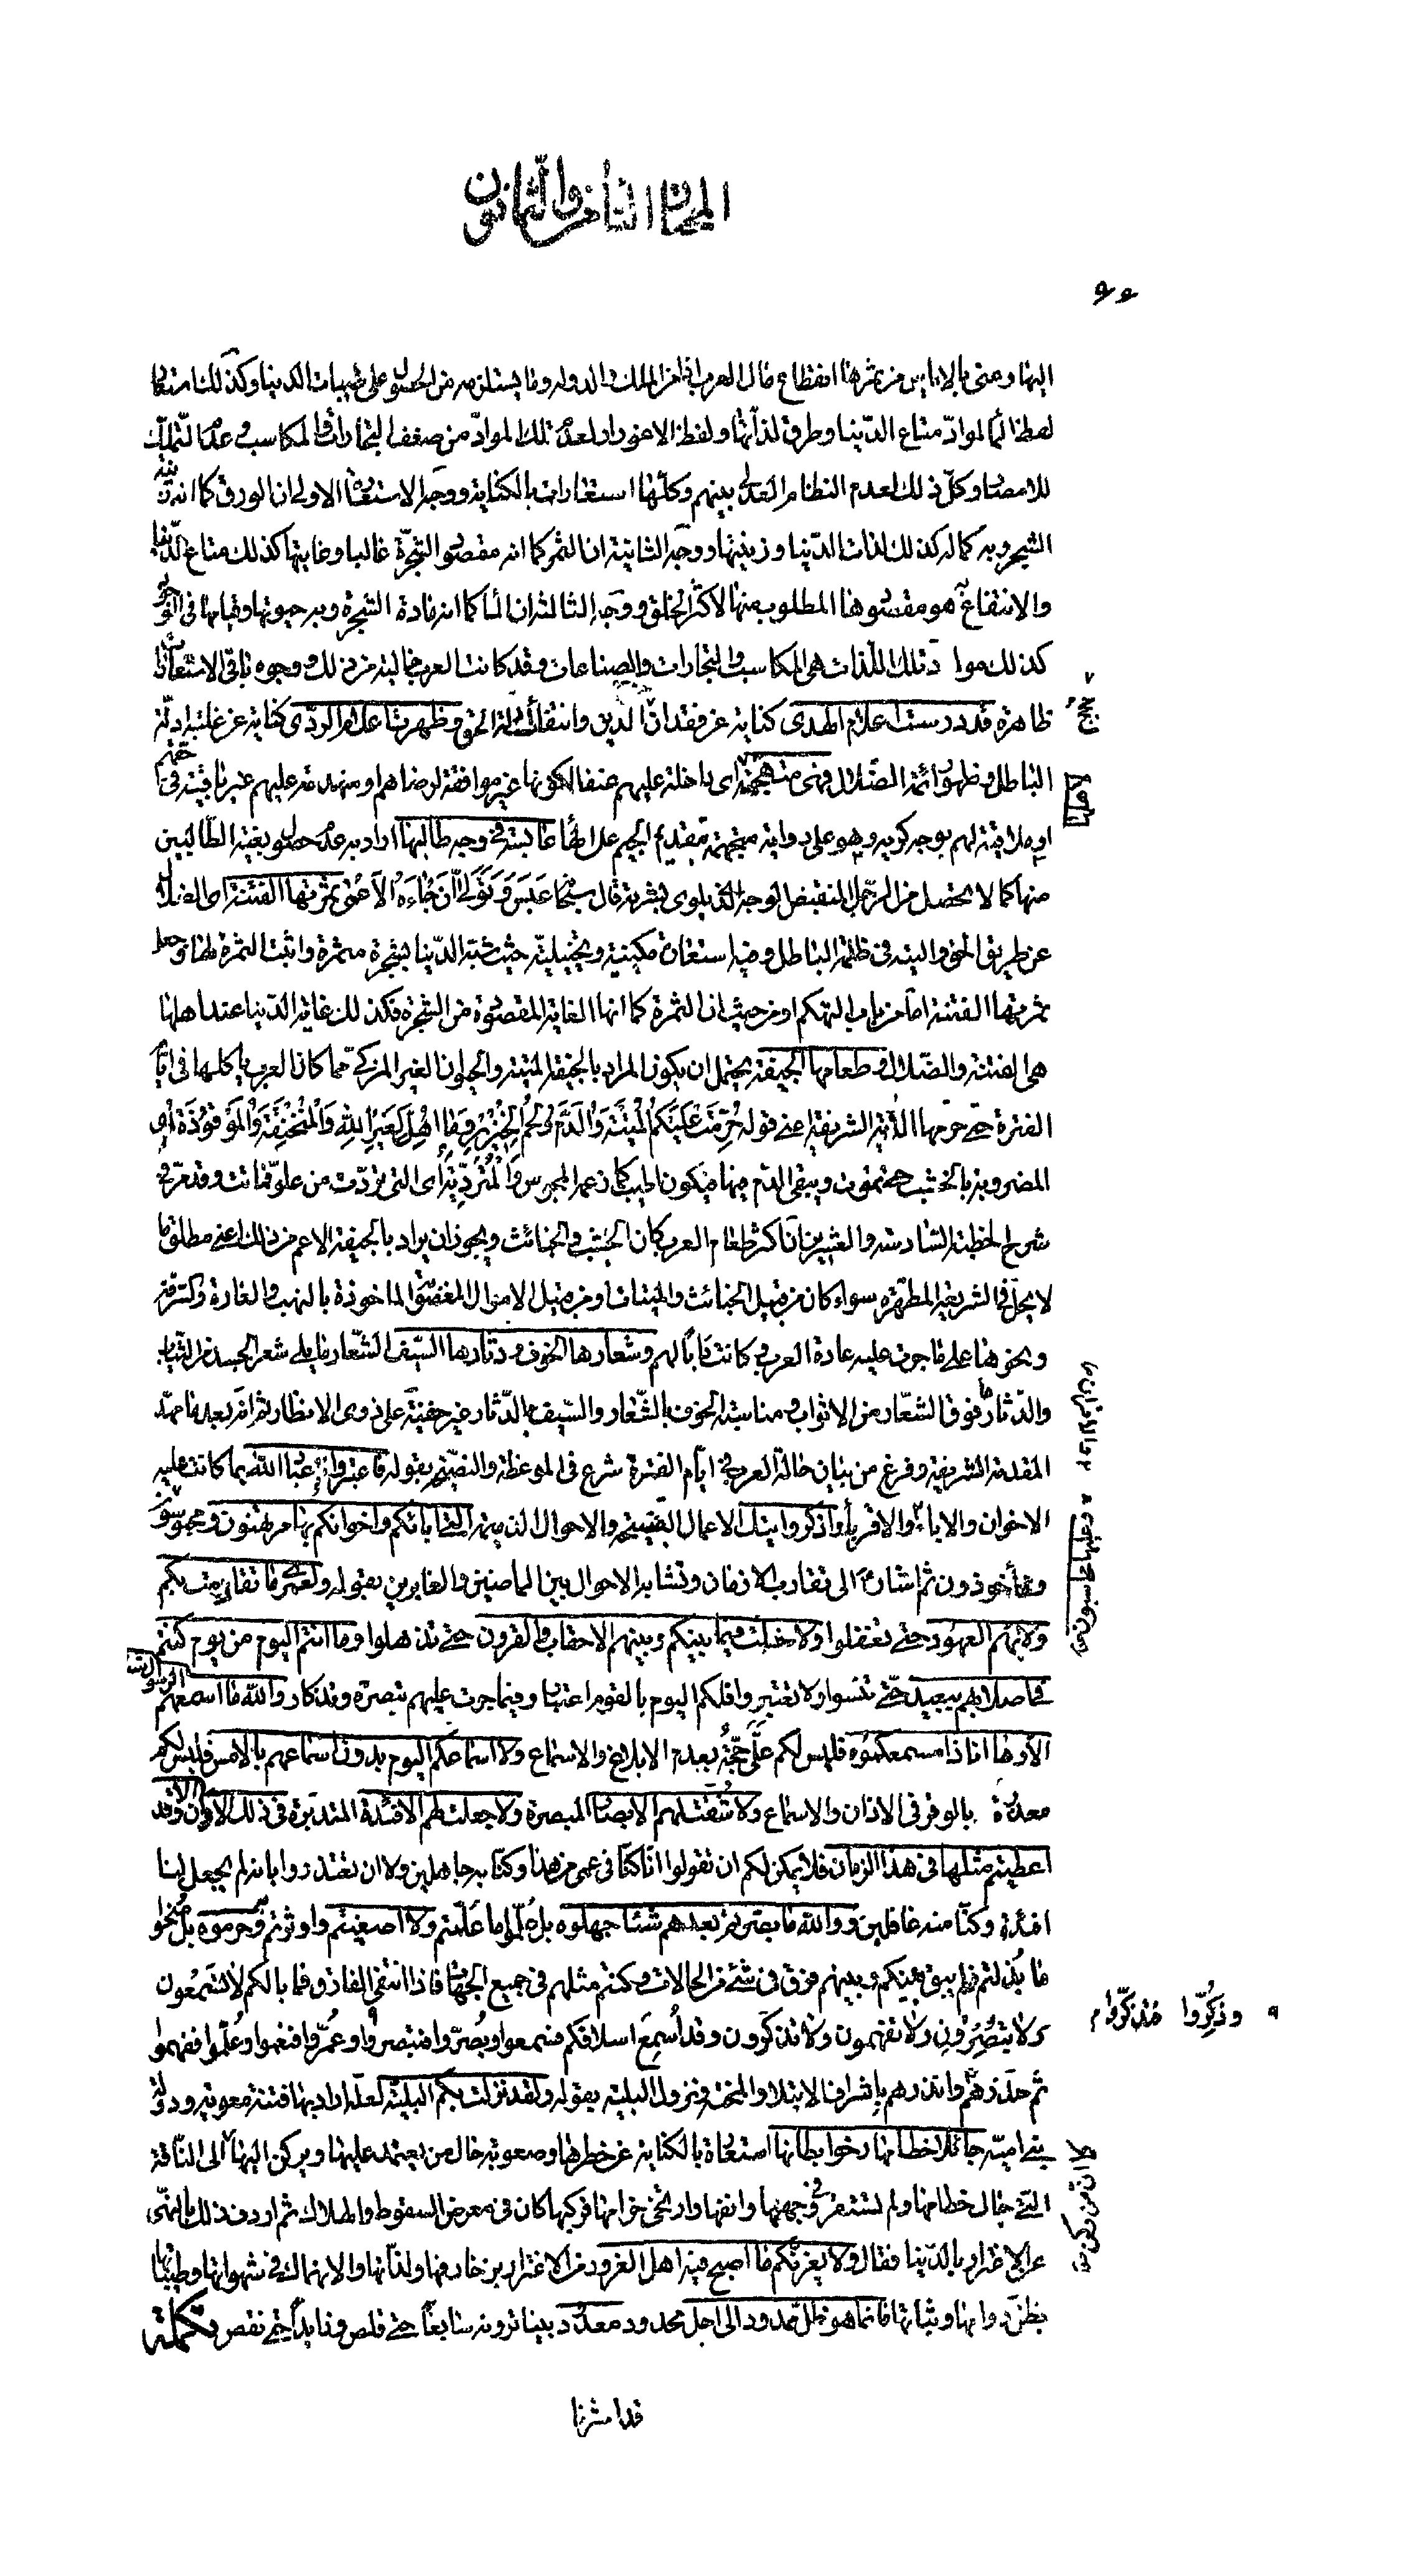 المختار الثامن والثمانون
اليها وعنى بالاياس من ثمرها انقطاع مال العرب اى من الملك والدولة وما يستلزمه من الحصول على طيبات الدنيا وكذلك استعار
لفظ الماء لمواد متاع الدنيا وطرق لذاتها ولفظ الاغورار لعدم تلك المواد من ضعف التجارات والمكاسب وعدم التملك
للامصار وكل ذلك لعدم النظام العدلى بينهم وكلها استعارات بالكناية ووجه الاستعارة الاولى ان الورق كما انه زينة
الشجر وبه كماله كذلك لذات الدنيا وزينتها ووجه الثانية ان الثمر كما انه مقصود الشجرة غالبا وغايتها كذلك متاع الدنيا
والانتفاع به هو مقصودها المطلوب منها لاكثر الخلق ووجه الثالثة ان الماء كما انه مادة الشجرة وبه حيوتها وقيامها فى الوجود
كذلك مواد تلك اللذات هى المكاسب والتجارات والصناعات وقد كانت العرب خالية من ذلك ووجوه باقى الاستعارات
ظاهرة قد درست اعلام الهدى كناية عن فقدان ائمة الدين وانتفاء ادلة الحق وظهرت اعلام الردى كناية عن غلبة ادلة
الباطل وظهور ائمة الضلال فهى متهجمة اى داخلة عليهم عنفا لكونها غير موافقة لرضاهم او منهدمة عليهم غير باقية فى حقهم
او ملاقية لهم بوجه كريه وهو على رواية متجهمة بتقديم الجيم على الهاء عابسة فى وجه طالبها اراد به عدم حصول بغية الطالبين
منها كما لا يحصل من الرجل المنقبض الوجه الذى يلوى بشرته قال سبحانه عَبَسَ وَتَوَلّى اَنْ جاءَهُ الْاَعْمى ثمرتها الفتنة اى الضلال
عن طريق الحق والتيه فى ظلمة الباطل وفيه استعارة مكنية وتخييلية حيث شبه الدنيا بشجرة مثمرة واثبت الثمرة لها وجعل
ثمرتها الفتنة اما من باب التهكم او من حيث ان الثمرة كما انها الغاية المقصودة من الشجرة فكذلك غاية الدنيا عند اهلها
هى الفتنة والضلال وطعامها الجيفة يحتمل ان يكون المراد بالجيفة الميتة والحيوان الغير المزكى مما كان العرب ياكلها فى ايام
الفترة حتى حرمها الاية الشريفة اعنى قوله حُرِّمَتْ عَلَيْكُمُ الْمَيْتَةُ وَالدَّمُ وَلَحْمُ الْخِنْزيرِ وَما اُهِلَّ لِغَيْرِ اللهِ وَالْمُنْخَنِقَةُ وَالْمَوْقُوذَةُ اى
المضروبة بالخشب حتى تموت ويبقى الدم فيها فيكون اطيب كما زعم المجوس وَالْمُتَرَدِّيَةُ اى التى تردت من علو فماتت وقد مر فى
شرح الخطبة السادسة والعشرين ان اكثر طعام العرب كان الجشب والخبائث ويجوز ان يراد بالجيفة الاعم من ذلك اعنى مطلق ما
لا يحل فى الشريعة المطهرة سواء كان من قبيل الخبائث والميتات او من قبيل الاموال المغصوبة الماخوذة بالنهب والغارة والسرقة
ونحوها على ما جرت عليه عادة العرب وكانت دابا لهم وشعارها الخوف ودثارها السيف الشعار ما يلى شعر الجسد من الثياب
والدثار ما فوق الشعار من الاثواب ومناسبة الخوف بالشعار والسيف بالدثار غير خفية على ذوى الانظار ثم انه بعد ما مهد
المقدمة الشريفة وفرغ من بيان حالة العرب فى ايام الفترة شرع فى الموعظة والنصيحة بقوله فاعتبروا عباد الله بما كانت عليه
الاخوان والاباء والاقرباء واذكروا تيك الاعمال القبيحة والاحوال الذميمة التى اباؤكم واخوانكم بها مرتهنون ومحبوسون
وماخوذون ثم اشار الى تقارب الازمان وتشابه الاحوال بين الماضين والغابرين بقوله ولعمرى ما تقادمت بكم
ولا بهم العهود حتى تغفلوا ولا خلت فيما بينكم وبينهم الاحقاب والقرون حتى تذهلوا وما انتم اليوم من يوم كنتم
فى اصلابهم ببعيد حتى تنسوا ولا تعتبروا فلكم اليوم بالقوم اعتبار وفيما جرت عليهم تبصرة وتذكار والله ما اسمعهم الرسول شيئا
الا وها انا ذا مسمعكموه فليس لكم على حجة بعدم الابلاغ والاسماع ولا اسماعكم اليوم بدون اسماعهم بالامس فليس لكم
معذرة بالوقر فى الاذان والاسماع ولا شقت لهم الابصار المبصرة ولا جعلت لهم الافئدة المتدبرة فى ذلك الاوان الا وقد
اعطيتم مثلها فى هذا الزمان فلا يمكن لكم ان تقولوا انا كنا فى عمى من هذا وكنا به جاهلين ولا ان تعتذروا بانه لم يجعل لنا
افئدة وكنا منه غافلين ووالله ما بصرتم بعدهم شيئا جهلوه بل علموا ما علمتم ولا اصفيتم واوثرتم به وحرموه بل منحوا
ما بذلتم فلم يبق بينكم وبينهم فرق فى شئ من الحالات وكنتم مثلهم فى جميع الجهات فاذا انتفى الفارق فما بالكم لا تَسْمَعُون
ولا تُبْصِرُون ولا تفهمون ولا تذكرون وقد اُسمِعَ اسلافكم فسمعوا وبُصّروا فتبصروا وعُمّروا فنعموا وعُلّموا ففهموا
ثم حذرهم وانذرهم باشراف الابتلاء والمحن ونزول البلية بقوله ولقد نزلت بكم البلية لعله اراد بها فتنة معوية ودولة
بنى امية جائلا خطامها رخوا بطانها استعارة بالكناية عن خطرها وصعوبة حال من يعتمد عليها ويركن اليها الى الناقة
التى جال خطامها ولم تستقر فى وجهها وانفها وارتخى حزامها فركبها كان فى معرض السقوط والهلاك ثم اردف ذلك بالنهى
عن الاغترار بالدنيا فقال ولا يغرنكم ما اصبح فيه اهل الغرور من الاغترار بزخارفها ولذاتها والانهماك فى شهواتها وطيباتها
بظن دوامها وثباتها فانما هو ظل ممدود الى اجل محدود معدود بينا ترونه سابغا حتى قلص وزايدا حتى نقص تكملة
قد اشرنا
٩ وذُكِّروا فتذكّروا م